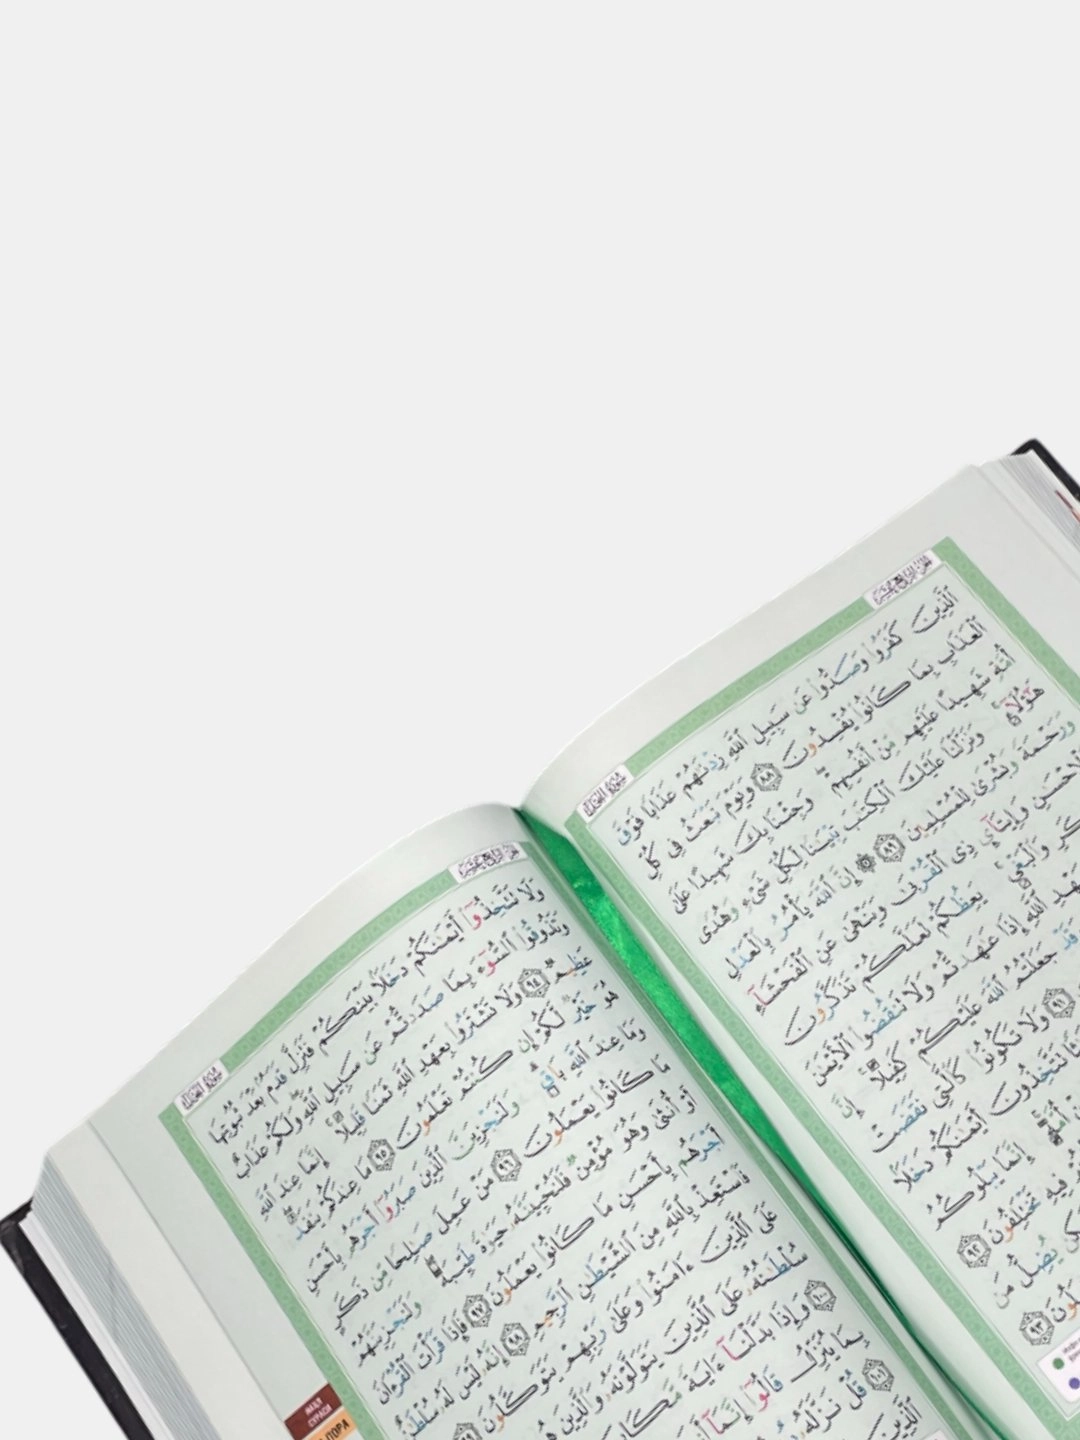 ٱلَّذِينَ كَفَرُوا۟ وَصَدُّوا۟ عَن سَبِيلِ ٱللَّهِ زِدْنَـٰهُمْ عَذَابًا فَوْقَ
ٱلْعَذَابِ بِمَا كَانُوا۟ يُفْسِدُونَ ٨٨ وَيَوْمَ نَبْعَثُ فِى كُلِّ
أُمَّةٍ شَهِيدًا عَلَيْهِم مِّنْ أَنفُسِهِمْ ۖ وَجِئْنَا بِكَ شَهِيدًا عَلَىٰ
هَـٰٓؤُلَآءِ ۚ وَنَزَّلْنَا عَلَيْكَ ٱلْكِتَـٰبَ تِبْيَـٰنًا لِّكُلِّ شَىْءٍ وَهُدًى
وَرَحْمَةً وَبُشْرَىٰ لِلْمُسْلِمِينَ ٨٩ ۞ إِنَّ ٱللَّهَ يَأْمُرُ بِٱلْعَدْلِ
وَٱلْإِحْسَـٰنِ وَإِيتَآئِ ذِى ٱلْقُرْبَىٰ وَيَنْهَىٰ عَنِ ٱلْفَحْشَآءِ
وَٱلْبَغْىِ ۚ يَعِظُكُمْ لَعَلَّكُمْ تَذَكَّرُونَ
ٱللَّهِ إِذَا عَـٰهَدتُّمْ وَلَا تَنقُضُوا۟ ٱلْأَيْمَـٰنَ
جَعَلْتُمُ ٱللَّهَ عَلَيْكُمْ كَفِيلًا ۚ إِنَّ
٩١ وَلَا تَكُونُوا۟ كَٱلَّتِى نَقَضَتْ
تَتَّخِذُونَ أَيْمَـٰنَكُمْ دَخَلًۢا
إِنَّمَا يَبْلُوكُمُ
فِيهِ تَخْتَلِفُونَ ٩٢
يُضِلُّ مَن
٩٣
وَلَا تَتَّخِذُوٓا۟ أَيْمَـٰنَكُمْ دَخَلًۢا بَيْنَكُمْ فَتَزِلَّ قَدَمٌۢ بَعْدَ ثُبُوتِهَا
وَتَذُوقُوا۟ ٱلسُّوٓءَ بِمَا صَدَدتُّمْ عَن سَبِيلِ ٱللَّهِ ۖ وَلَكُمْ عَذَابٌ
عَظِيمٌ ٩٤ وَلَا تَشْتَرُوا۟ بِعَهْدِ ٱللَّهِ ثَمَنًا قَلِيلًا ۚ إِنَّمَا عِندَ ٱللَّهِ
هُوَ خَيْرٌ لَّكُمْ إِن كُنتُمْ تَعْلَمُونَ ٩٥ مَا عِندَكُمْ يَنفَدُ ۖ
وَمَا عِندَ ٱللَّهِ بَاقٍ ۗ وَلَنَجْزِيَنَّ ٱلَّذِينَ صَبَرُوٓا۟ أَجْرَهُم بِأَحْسَنِ
مَا كَانُوا۟ يَعْمَلُونَ ٩٦ مَنْ عَمِلَ صَـٰلِحًا مِّن ذَكَرٍ
أَوْ أُنثَىٰ وَهُوَ مُؤْمِنٌ فَلَنُحْيِيَنَّهُۥ حَيَوٰةً طَيِّبَةً ۖ وَلَنَجْزِيَنَّهُمْ
أَجْرَهُم بِأَحْسَنِ مَا كَانُوا۟ يَعْمَلُونَ ٩٧ فَإِذَا قَرَأْتَ ٱلْقُرْءَانَ
فَٱسْتَعِذْ بِٱللَّهِ مِنَ ٱلشَّيْطَـٰنِ ٱلرَّجِيمِ ٩٨ إِنَّهُۥ لَيْسَ لَهُۥ سُلْطَـٰنٌ
عَلَى ٱلَّذِينَ ءَامَنُوا۟ وَعَلَىٰ رَبِّهِمْ يَتَوَكَّلُونَ ٩٩
سُلْطَـٰنُهُۥ عَلَى ٱلَّذِينَ يَتَوَلَّوْنَهُۥ وَٱلَّذِينَ هُم
١٠٠ وَإِذَا بَدَّلْنَآ ءَايَةً مَّكَانَ
بِمَا يُنَزِّلُ قَالُوٓا۟ إِنَّمَآ
١٠١ قُلْ نَزَّلَهُۥ
ٱلَّذِينَ
НАҲЛ
СУРАСИ
ПОРА